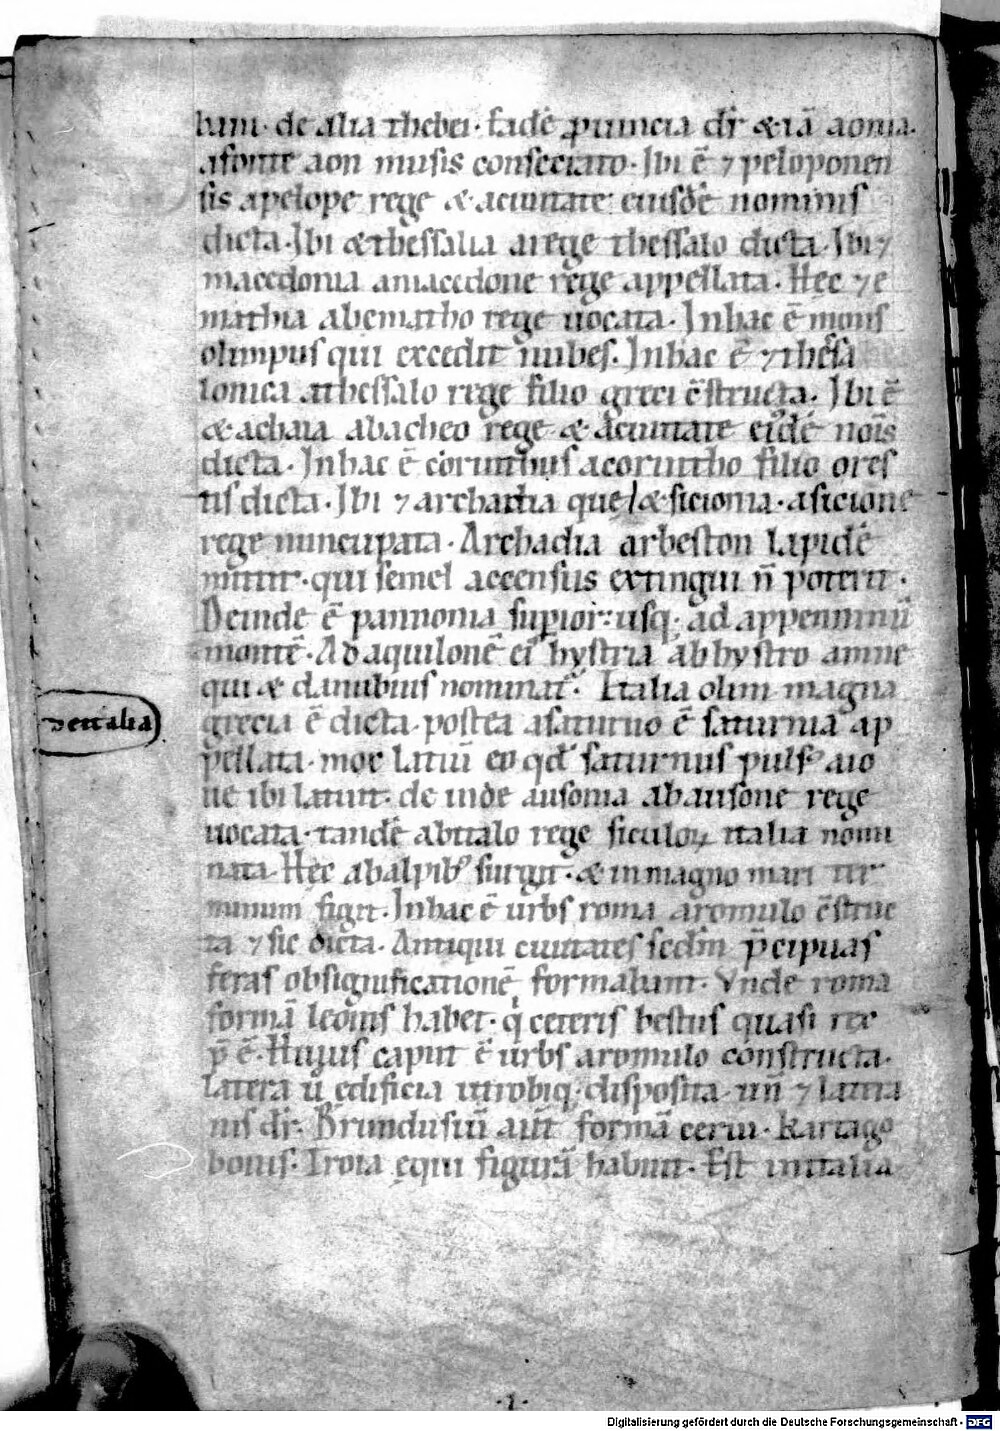 bani. de alia thebei. Eadē ꝓuincia dr̄ & iā aonia.
afonte aon musis consecrato. Ibi ē ⁊ peloponen
sis apelope rege & aciuitate eiusdē nominis
dicta. Ibi & thessalia arege thessalo dicta. Ibi ⁊
macedonia amacedone rege appellata. Hec ⁊ e
mathia abematho rege uocata. Inhac ē mons
olimpus qui excedit nubes. Inhac ē ⁊ thesa
lonica athessalo rege filio greci ɔ̄structa. Ibi ē
& achaia abacheo rege & aciuitate eiꝰdē nōis
dicta. Inhac ē corinthus acorintho filio ores
tis dicta. Ibi ⁊ archadia que & sicionia. asicione
rege nuncupata. Archadia arbeston lapidē
mittit. qui semel accensus extingui n̄ poterit.
Deinde ē pannonia supior: usq; ad appenninū
montē. Ad aquilonē ei hystria abhystro amne
qui & danubius nominatꝰ. Italia olim magna
De italia
grecia ē dicta. postea asaturno ē saturnia ap
pellata. mox latiū eo qđ saturnus pulsꝰ aio
ue ibi latuit. de inde ausonia abausone rege
uocata. tandē abitalo rege siculoꝝ italia nomi
nata. Hec abalpibꝰ surgit. & inmagno mari ter
minum figit. Inhac ē urbs roma aromulo ɔ̄struc
ta ⁊ sic dicta. Antiqui ciuitates scdm̄ p̄cipuas
feras obsignificationē formabant. Vnde roma
formā leonis habet. q̇ ceteris bestiis quasi rex
p̄ ē. Huius caput ē urbs aromulo constructa.
Latera ū edificia utrobiq; disposita. un̄ ⁊ latera
nis dr̄. Brundusiū aūt formā cerui. Kartago
bouis. Troia equi figurā habuit. Est initalia
.1.
Digitalisierung gefördert durch die Deutsche Forschungsgemeinschaft - DFG